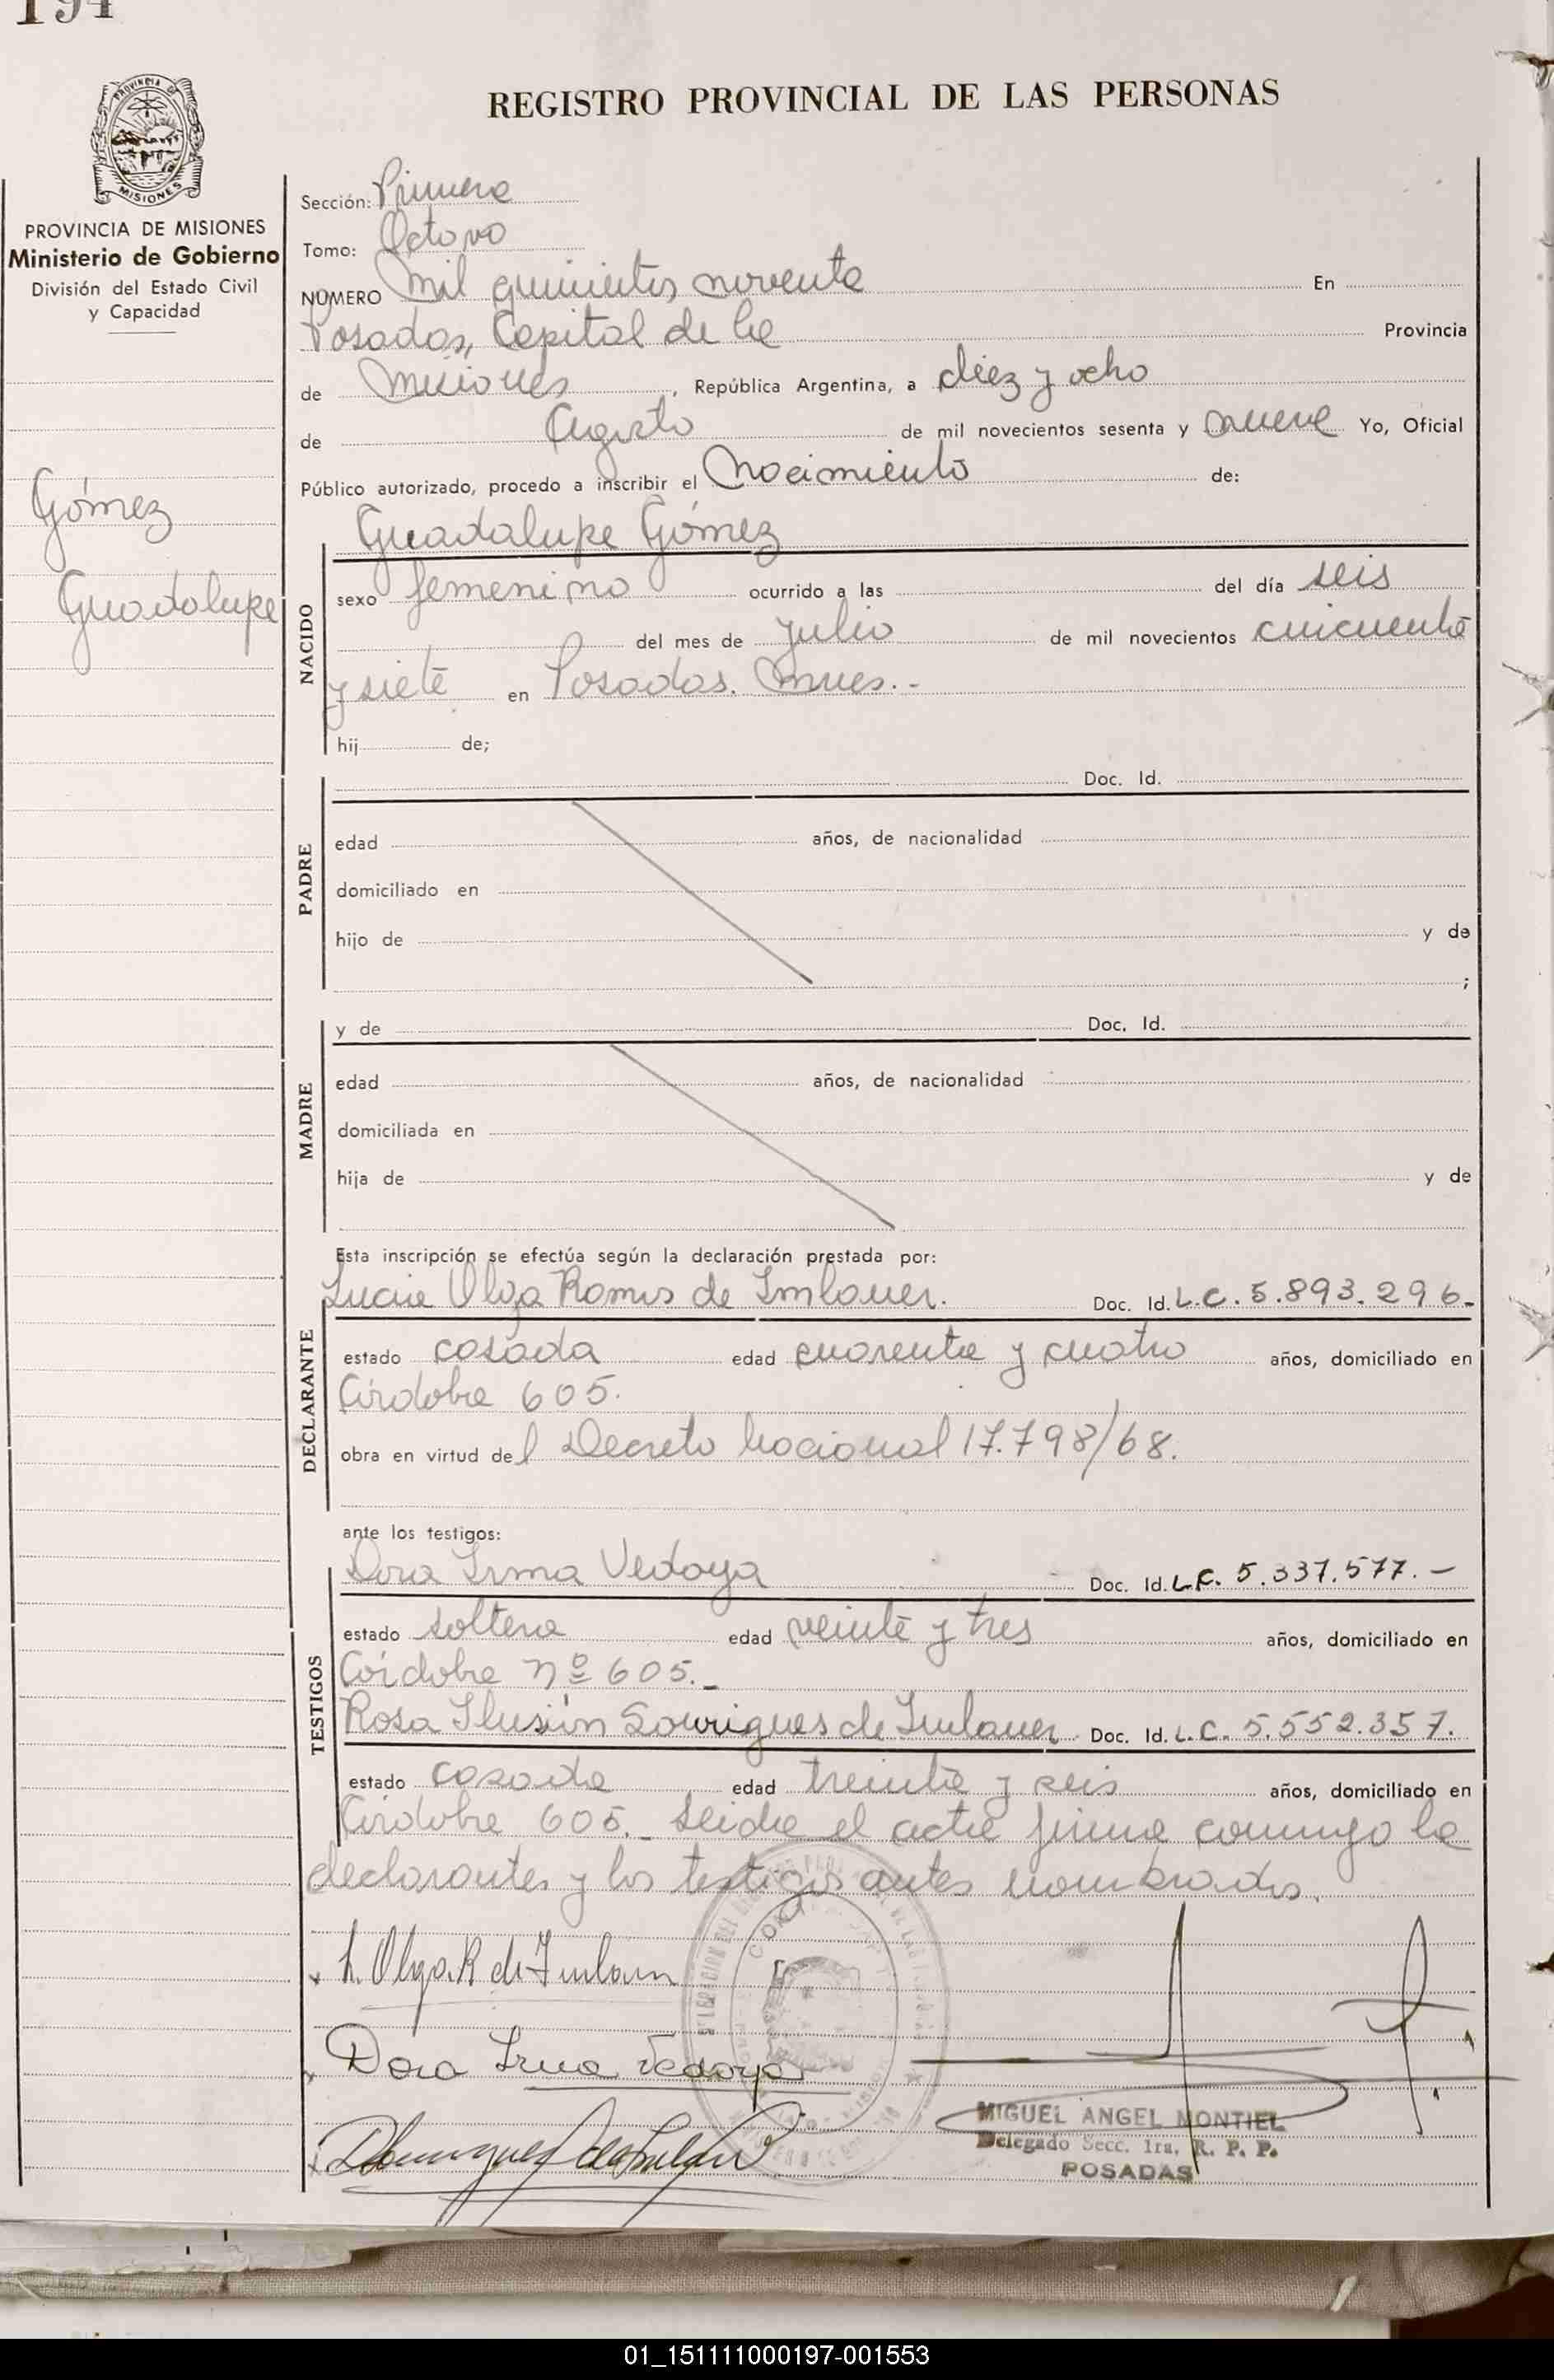 194
REGISTRO PROVINCIAL DE LAS PERSONAS
PROVINCIA DE MISIONES
Ministerio de Gobierno
División del Estado Civil
y Capacidad
Gómez
Guadalupe
Sección: Primera
Tomo: Octavo
NÚMERO mil quinientos noventa En
Posadas, Capital de la Provincia
de Misiones, República Argentina, a diez y ocho
de Agosto de mil novecientos sesenta y nueve Yo, Oficial
Público autorizado, procedo a inscribir el Nacimiento de:
NACIDO
Guadalupe Gómez
sexo femenino ocurrido a las del día seis
del mes de Julio de mil novecientos cincuenta
y siete en Posadas. Mnes.-
hij de;
PADRE
Doc. Id.
edad años, de nacionalidad
domiciliado en
hijo de y de
;
MADRE
y de Doc. Id.
edad años, de nacionalidad
domiciliada en
hija de y de
Esta inscripción se efectúa según la declaración prestada por:
DECLARANTE
Lucia Olga Ramis de Imlauer. Doc. Id. L.C. 5.893.296.
estado casada edad cuarenta y cuatro años, domiciliado en
Córdoba 605.
obra en virtud del Decreto Nacional 17.798/68.
ante los testigos:
TESTIGOS
Dora Irma Vedoya Doc. Id. L.C. 5.337.577.-
estado soltera edad veinte y tres años, domiciliado en
Córdoba nº 605.-
Rosa Ilusión de Imlauer Doc. Id. L.C. 5.552.357.
estado casada edad treinta y seis años, domiciliado en
Córdoba 605.- Leida el acta firma conmigo la
declarantes y los testigos antes nombrados.
L. Olga R de Imlauer
Dora Irma Vedoya
MIGUEL ANGEL MONTIEL
Delegado Secc. 1ra. R. P. P.
POSADAS
01_151111000197-001553